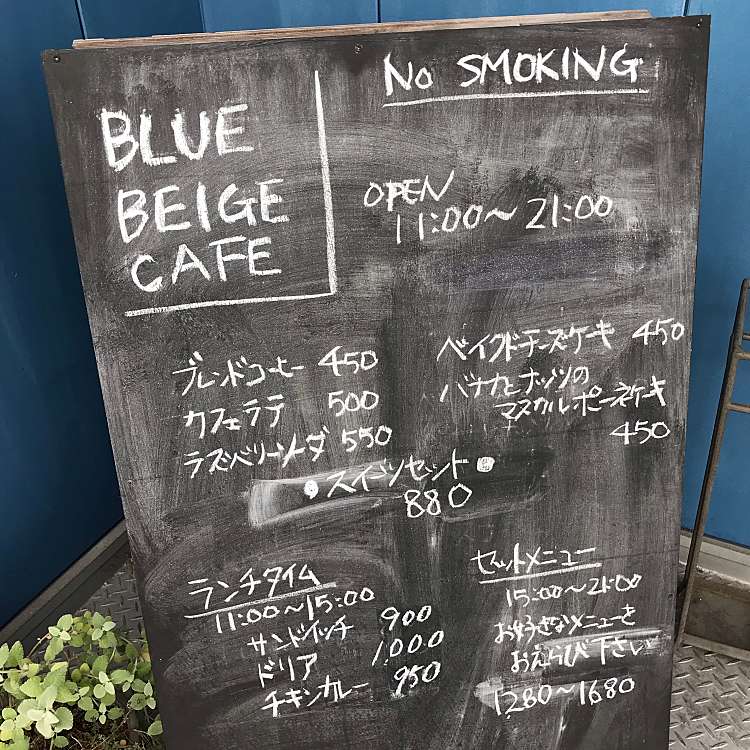 BLUE
BEIGE
CAFE
No SMOKING
OPEN
11:00～21:00
ブレンドコーヒー 450
カフェラテ 500
ラズベリーソーダ 550
ベイクドチーズケーキ 450
バナナとナッツの
マスカルポーネケーキ
450
スイーツセット
880
ランチタイム
11:00～15:00
サンドイッチ 900
ドリア 1000
チキンカレー 950
セットメニュー
15:00～21:00
お好きなメニューを
おえらび下さい
1280～1680